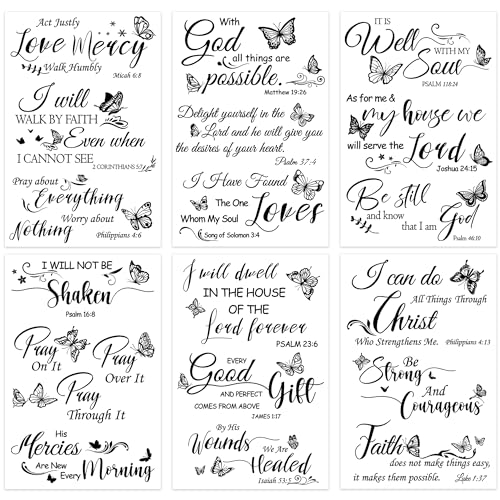 Act Justly
Love Mercy
Walk Humbly
Micah 6:8
I will
WALK BY FAITH
Even when
I CANNOT SEE
2 CORINTHIANS 5:7
Pray about
Everything
Worry about
Nothing
Philippians 4:6
With
God
all things are
possible.
Matthew 19:26
Delight yourself in the
Lord and he will give you
the desires of your heart.
Psalm 37:4
I Have Found
The One
Whom My Soul
Loves
Song of Solomon 3:4
IT IS
Well
WITH MY
Soul
PSALM 118:24
As for me &
my house we
will serve the Lord
Joshua 24:15
Be still
and know
that I am
God
Psalm 46:10
I WILL NOT BE
Shaken
Psalm 16:8
Pray
On It
Pray
Over It
Pray
Through It
His
Mercies
Are New
Every Morning
I will dwell
IN THE HOUSE
OF THE
Lord forever
PSALM 23:6
EVERY
Good
AND PERFECT
Gift
COMES FROM ABOVE
JAMES 1:17
By His
Wounds
We Are
Healed
Isaiah 53:5
I can do
All Things Through
Christ
Who Strengthens Me.
Philippians 4:13
Be
Strong
And
Courageous
Faith
does not make things easy,
it makes them possible.
Luke 1:37